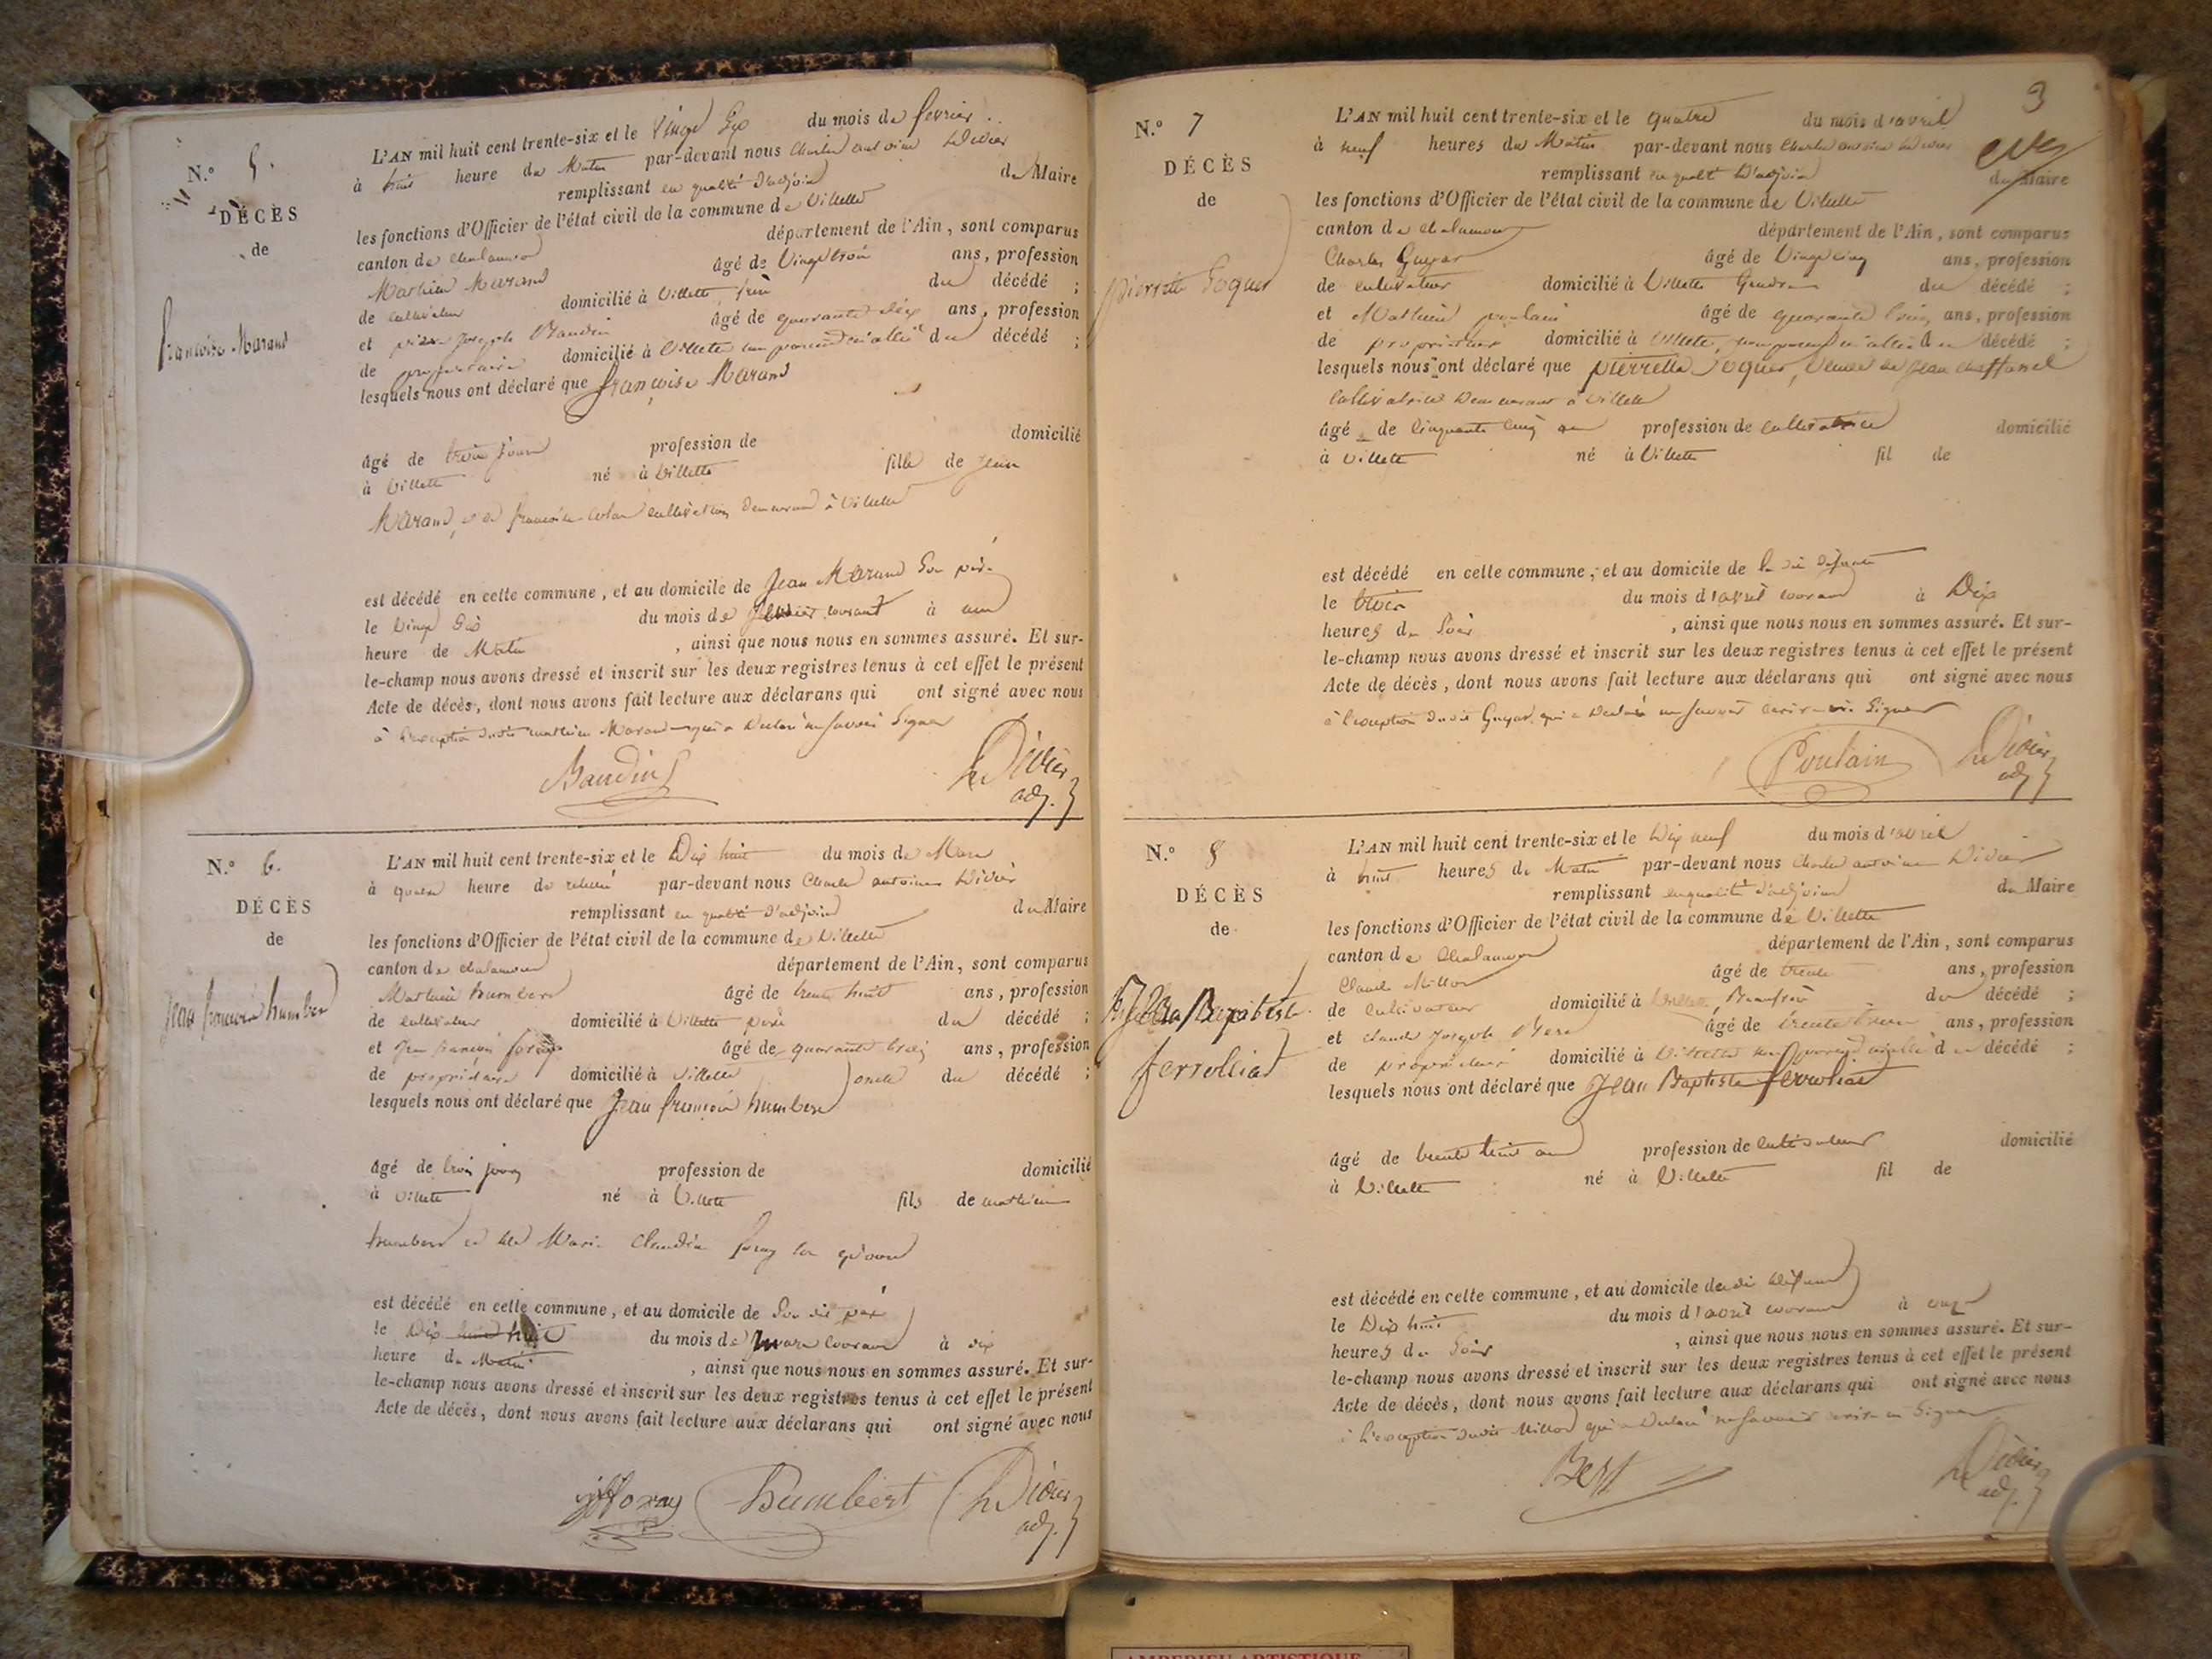 N.º 5.
DÉCÈS
de
françoise Marand
L'AN mil huit cent trente-six et le Vingt Six du mois de fevrier
à huit heure du Matin par-devant nous Charles antoine Didier
remplissant en qualité d'adjoint du Maire
les fonctions d'Officier de l'état civil de la commune de Villette
canton de chalamont département de l'Ain, sont comparus
Mathieu Marand âgé de Vingt trois ans, profession
de cultivateur domicilié à Villette, du décédé ;
et Joseph Baudin âgé de quarante ans, profession
de propriétaire domicilié à Villette du décédé ;
lesquels nous ont déclaré que françoise Marand
âgé de trois jours profession de domicilié
à Villette né à Villette fille de Jean
Marand, et de françoise cultivateurs demeurant à Villette
est décédé en cette commune, et au domicile de Jean Marand Son père
le Vingt Six du mois de fevrier courant à une
heure de Matin , ainsi que nous nous en sommes assuré. Et sur-
le-champ nous avons dressé et inscrit sur les deux registres tenus à cet effet le présent
Acte de décès, dont nous avons fait lecture aux déclarans qui ont signé avec nous
à l'exception dudit mathieu Marand qui a Declaré ne Savoir Signer
Baudin Didier
adj.
N.º 6.
DÉCÈS
de
Jean françois humbert
L'AN mil huit cent trente-six et le Dix huit du mois de Mars
à quatre heure de relevée par-devant nous Charles antoine Didier
remplissant en qualité d'adjoint du Maire
les fonctions d'Officier de l'état civil de la commune de Villette
canton de chalamont département de l'Ain, sont comparus
Mathieu humbert âgé de trente huit ans, profession
de cultivateur domicilié à Villette père du décédé ;
et Jean francois foray âgé de quarante ans, profession
de propriétaire domicilié à Villette oncle du décédé ;
lesquels nous ont déclaré que Jean françois humbert
âgé de trois jours profession de domicilié
à Villette né à Villette fils de mathieu
humbert et de Marie Claudine foray
est décédé en cette commune, et au domicile de Son dit père
le Dix huit du mois de mars courant à dix
heure du Matin , ainsi que nous nous en sommes assuré. Et sur-
le-champ nous avons dressé et inscrit sur les deux registres tenus à cet effet le présent
Acte de décès, dont nous avons fait lecture aux déclarans qui ont signé avec nous
jf foray Humbert Didier
adj.
3
N.º 7
DÉCÈS
de
pierrette Goquet
L'AN mil huit cent trente-six et le quatre du mois d'avril
à neuf heures du Matin par-devant nous Charles antoine Didier
remplissant en qualité d'adjoint du Maire
les fonctions d'Officier de l'état civil de la commune de Villette
canton de chalamont département de l'Ain, sont comparus
Charles Guyot âgé de Vingt cinq ans, profession
de cultivateur domicilié à Villette Gendre du décédé ;
et Mathieu poulain âgé de quarante cinq ans, profession
de propriétaire domicilié à Villette, du décédé ;
lesquels nous ont déclaré que pierrette Goquet, Veuve de Jean chaffanel
cultivatrice demeurant à Villette
âgé de cinquante cinq ans profession de cultivatrice domicilié
à Villette né à Villette fil de
est décédé en cette commune, et au domicile de la dite défunte
le trois du mois d'avril courant à Dix
heures du Soir , ainsi que nous nous en sommes assuré. Et sur-
le-champ nous avons dressé et inscrit sur les deux registres tenus à cet effet le présent
Acte de décès, dont nous avons fait lecture aux déclarans qui ont signé avec nous
à l'exception dudit Guyot qui a Declaré ne Savoir écrire ni Signer
Poulain Didier
adj.
N.º 8
DÉCÈS
de
Jean Baptiste
ferrolliat
L'AN mil huit cent trente-six et le Dix neuf du mois d'avril
à huit heures du Matin par-devant nous Charles antoine Didier
remplissant en qualité d'adjoint du Maire
les fonctions d'Officier de l'état civil de la commune de Villette
canton de Chalamont département de l'Ain, sont comparus
Claude Millon âgé de trente ans, profession
de cultivateur domicilié à Villette, Beaufrère du décédé ;
et claude Joseph Best âgé de trente ans, profession
de propriétaire domicilié à Villette du décédé ;
lesquels nous ont déclaré que Jean Baptiste ferrolliat
âgé de trente huit ans profession de cultivateur domicilié
à Villette né à Villette fil de
est décédé en cette commune, et au domicile dudit défunt
le Dix huit du mois d'avril courant à onze
heures du Soir , ainsi que nous nous en sommes assuré. Et sur-
le-champ nous avons dressé et inscrit sur les deux registres tenus à cet effet le présent
Acte de décès, dont nous avons fait lecture aux déclarans qui ont signé avec nous
à l'exception dudit Millon qui a Declaré ne Savoir écrire ni Signer
Best Didier
adj.
AMBERIEU ARTISTIQUE